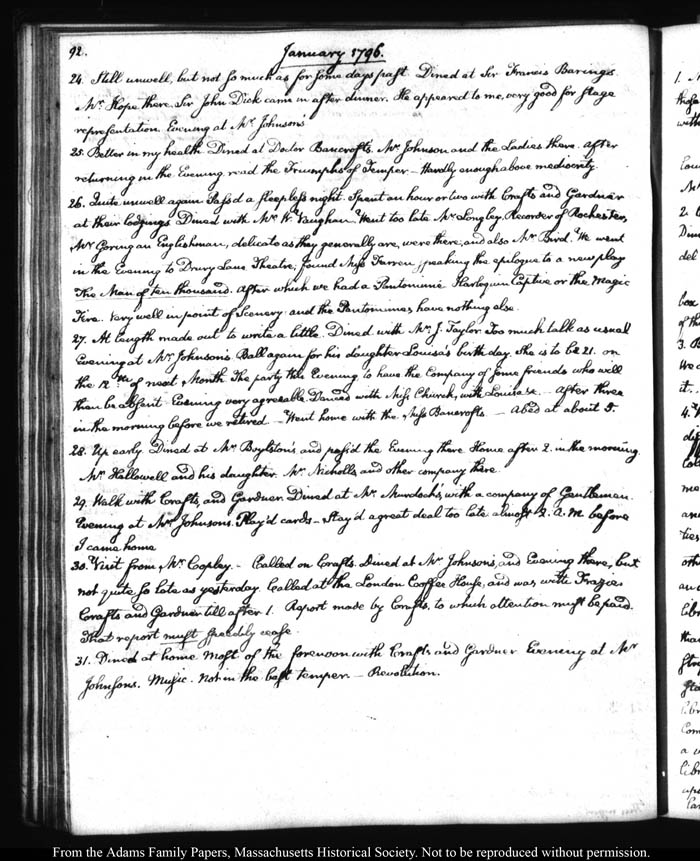 92.
January 1796.
24. Still unwell, but not so much as for some days past. Dined at Sir Francis Barings.
Mr. Hope there. Sir John Dick came in after dinner. He appeared to me, very good for stage
representation. Evening at Mr. Johnson's
25. Better in my health. Dined at Doctor Bancroft's. Mr. Johnson and the Ladies there. After
returning in the Evening read the Triumphs of Temper — Hardly enough above mediocrity.
26. Quite unwell again. Pass'd a sleepless night. Spent an hour or two with Crafts and Gardner
at their lodgings. Dined with Mr. W. Vaughan. Went too late. Mr. Longley, Recorder of Rochester,
Mr. Goring an Englishman, delicate as they generally are, were there, and also Mr. Bird. We went
in the Evening to Drury Lane Theatre; found Miss Farren speaking the epilogue to a new play
The Man of ten thousand. After which we had a Pantomime Harlequin Captive or the Magic
Fire. Very well in point of Scenery and the Pantomimes have nothing else.
27. At length made out to write a little. Dined with Mr. J. Taylor. Too much talk as usual
Evening at Mr. Johnson's. Ball again for his daughter Louisa's birth day. She is to be 21. on
the 12th of next Month. The party this Evening to have the Company of some friends who will
then be absent. Evening very agreeable. Danced with Miss Church, with Louisa &c. After three
in the morning before we retired — Went home with the Miss Bancrofts. — Abed at about 5.
28. Up early. Dined at Mr. Boylston's and pass'd the Evening there. Home after 2. in the morning.
Mr. Hallowell and his daughter. Mr. Nicholls and other company there.
29. Walk with Crafts, and Gardner. Dined at Mr. Murdoch's, with a company of Gentlemen.
Evening at Mr. Johnsons. Play'd cards — Stay'd a great deal too late almost 2. A.M. before
I came home
30. Visit from Mr. Copley. — Called on Crafts. Dined at Mr. Johnson's, and Evening there, but
not quite so late as yesterday. Called at the London Coffee House, and was with Frazier
Crafts and Gardner till after 1. Report made by Crafts, to which attention must be paid.
That report must speedily cease.
31. Dined at home. Most of the forenoon with Crafts and Gardner Evening at Mr.
Johnsons. Music. Not in the best temper. — Revolution.
From the Adams Family Papers, Massachusetts Historical Society. Not to be reproduced without permission.